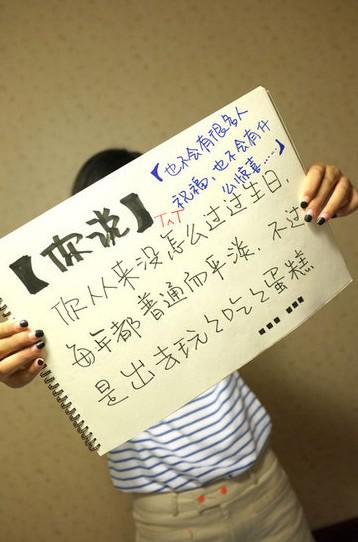 【你说】
『也不会有很多人
祝福，也不会有什
么惊喜……』
TAT
你从来没怎么过过生日，
每年都普通而平淡．不过
是出去玩么吃么蛋糕
……